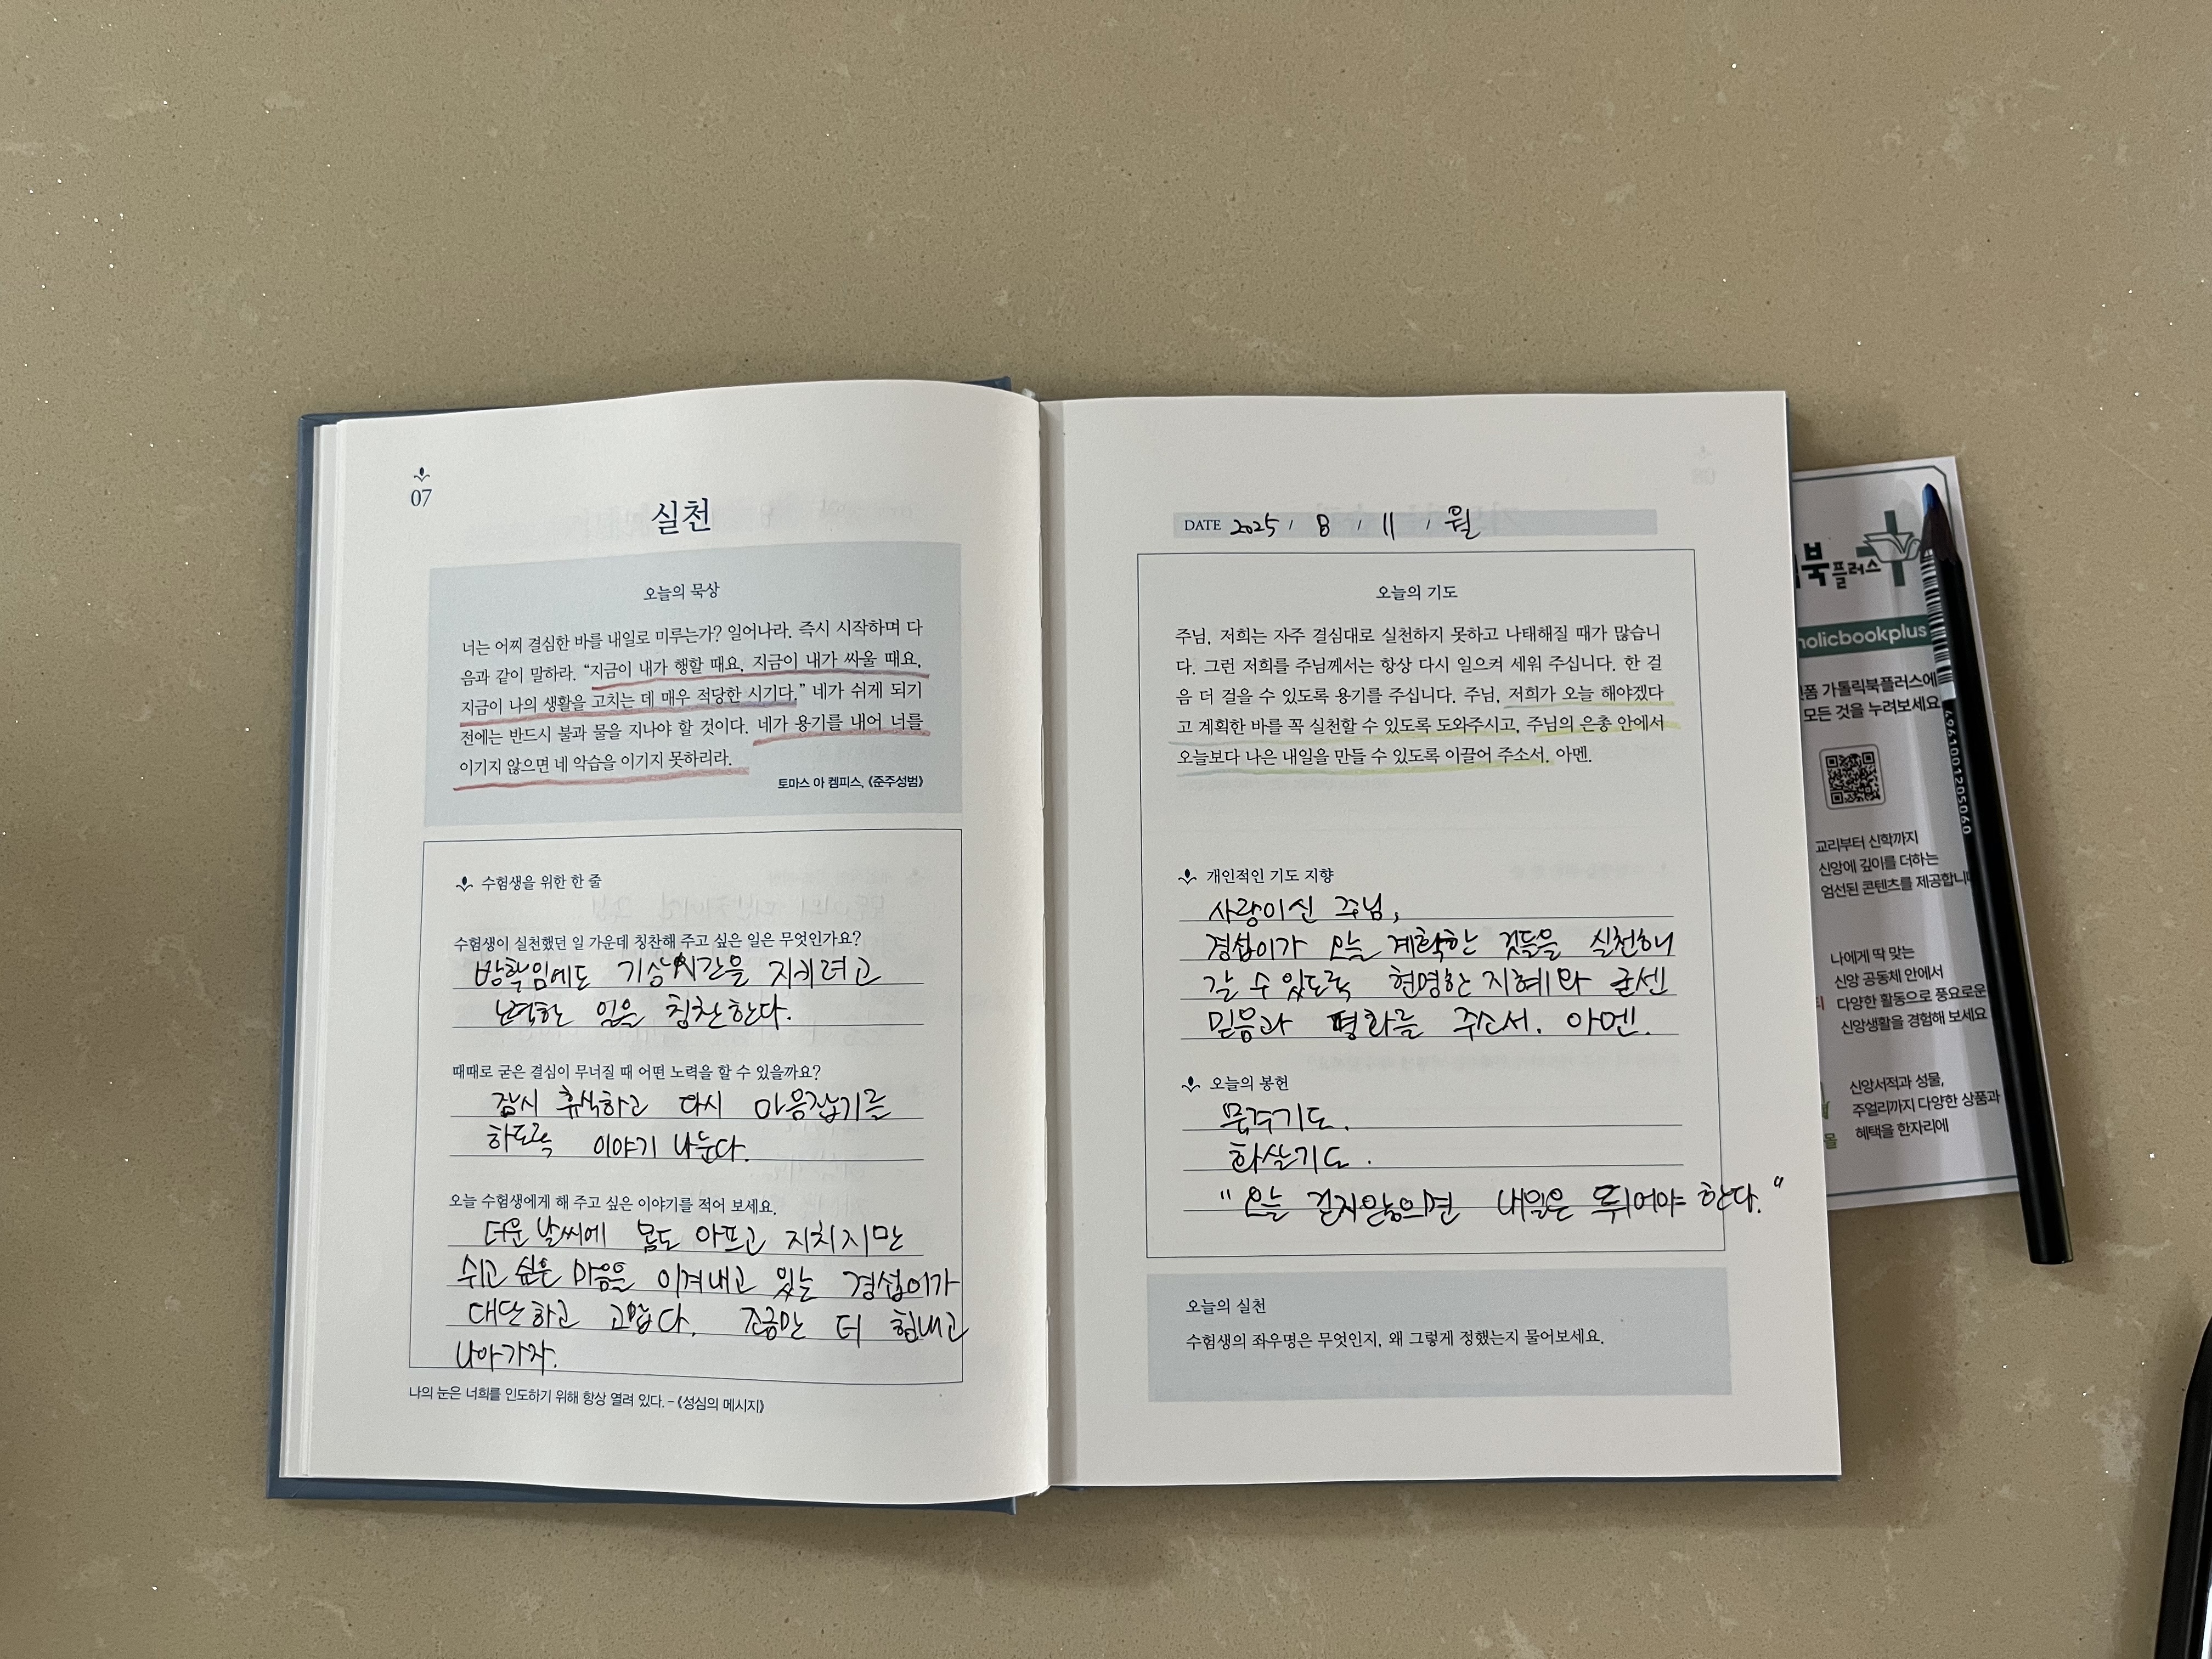 07
실천
오늘의 묵상
너는 어찌 결심한 바를 내일로 미루는가? 일어나라. 즉시 시작하며 다
음과 같이 말하라. “지금이 내가 행할 때요, 지금이 내가 싸울 때요,
지금이 나의 생활을 고치는 데 매우 적당한 시기다.” 네가 쉬게 되기
전에는 반드시 불과 물을 지나야 할 것이다. 네가 용기를 내어 너를
이기지 않으면 네 악습을 이기지 못하리라.
토마스 아 켐피스, 《준주성범》
수험생을 위한 한 줄
수험생이 실천했던 일 가운데 칭찬해 주고 싶은 일은 무엇인가요?
방학임에도 기상시간을 지키려고
노력하는 일을 칭찬한다.
때때로 굳은 결심이 무너질 때 어떤 노력을 할 수 있을까요?
잠시 휴식하고 다시 마음잡기를
하도록 이야기 나눈다.
오늘 수험생에게 해 주고 싶은 이야기를 적어 보세요.
더운 날씨에 몸도 아프고 지치지만
쉬고 싶은 마음을 이겨내고 있는 경섭이가
대단하고 고맙다. 조금만 더 힘내고
나아가자.
나의 눈은 너희를 인도하기 위해 항상 열려 있다. - 《성심의 메시지》
DATE 2025 / 8 / 11 / 월
오늘의 기도
주님, 저희는 자주 결심대로 실천하지 못하고 나태해질 때가 많습니
다. 그런 저희를 주님께서는 항상 다시 일으켜 세워 주십니다. 한 걸
음 더 걸을 수 있도록 용기를 주십니다. 주님, 저희가 오늘 해야겠다
고 계획한 바를 꼭 실천할 수 있도록 도와주시고, 주님의 은총 안에서
오늘보다 나은 내일을 만들 수 있도록 이끌어 주소서. 아멘.
개인적인 기도 지향
사랑이신 주님,
경섭이가 오늘 계획한 것들을 실천해
갈 수 있도록 현명한 지혜와 굳센
믿음과 평화를 주소서. 아멘.
오늘의 봉헌
묵주기도.
화살기도.
"오늘 걷지않으면 내일은 뛰어야 한다."
오늘의 실천
수험생의 좌우명은 무엇인지, 왜 그렇게 정했는지 물어보세요.
북플러스
holicbookplus
가톨릭북플러스에
모든 것을 누려보세요
교리부터 신학까지
신앙에 깊이를 더하는
엄선된 콘텐츠를 제공합니
나에게 딱 맞는
신앙 공동체 안에서
다양한 활동으로 풍요로운
신앙생활을 경험해 보세요
신앙서적과 성물,
주얼리까지 다양한 상품과
혜택을 한자리에
4961001205060